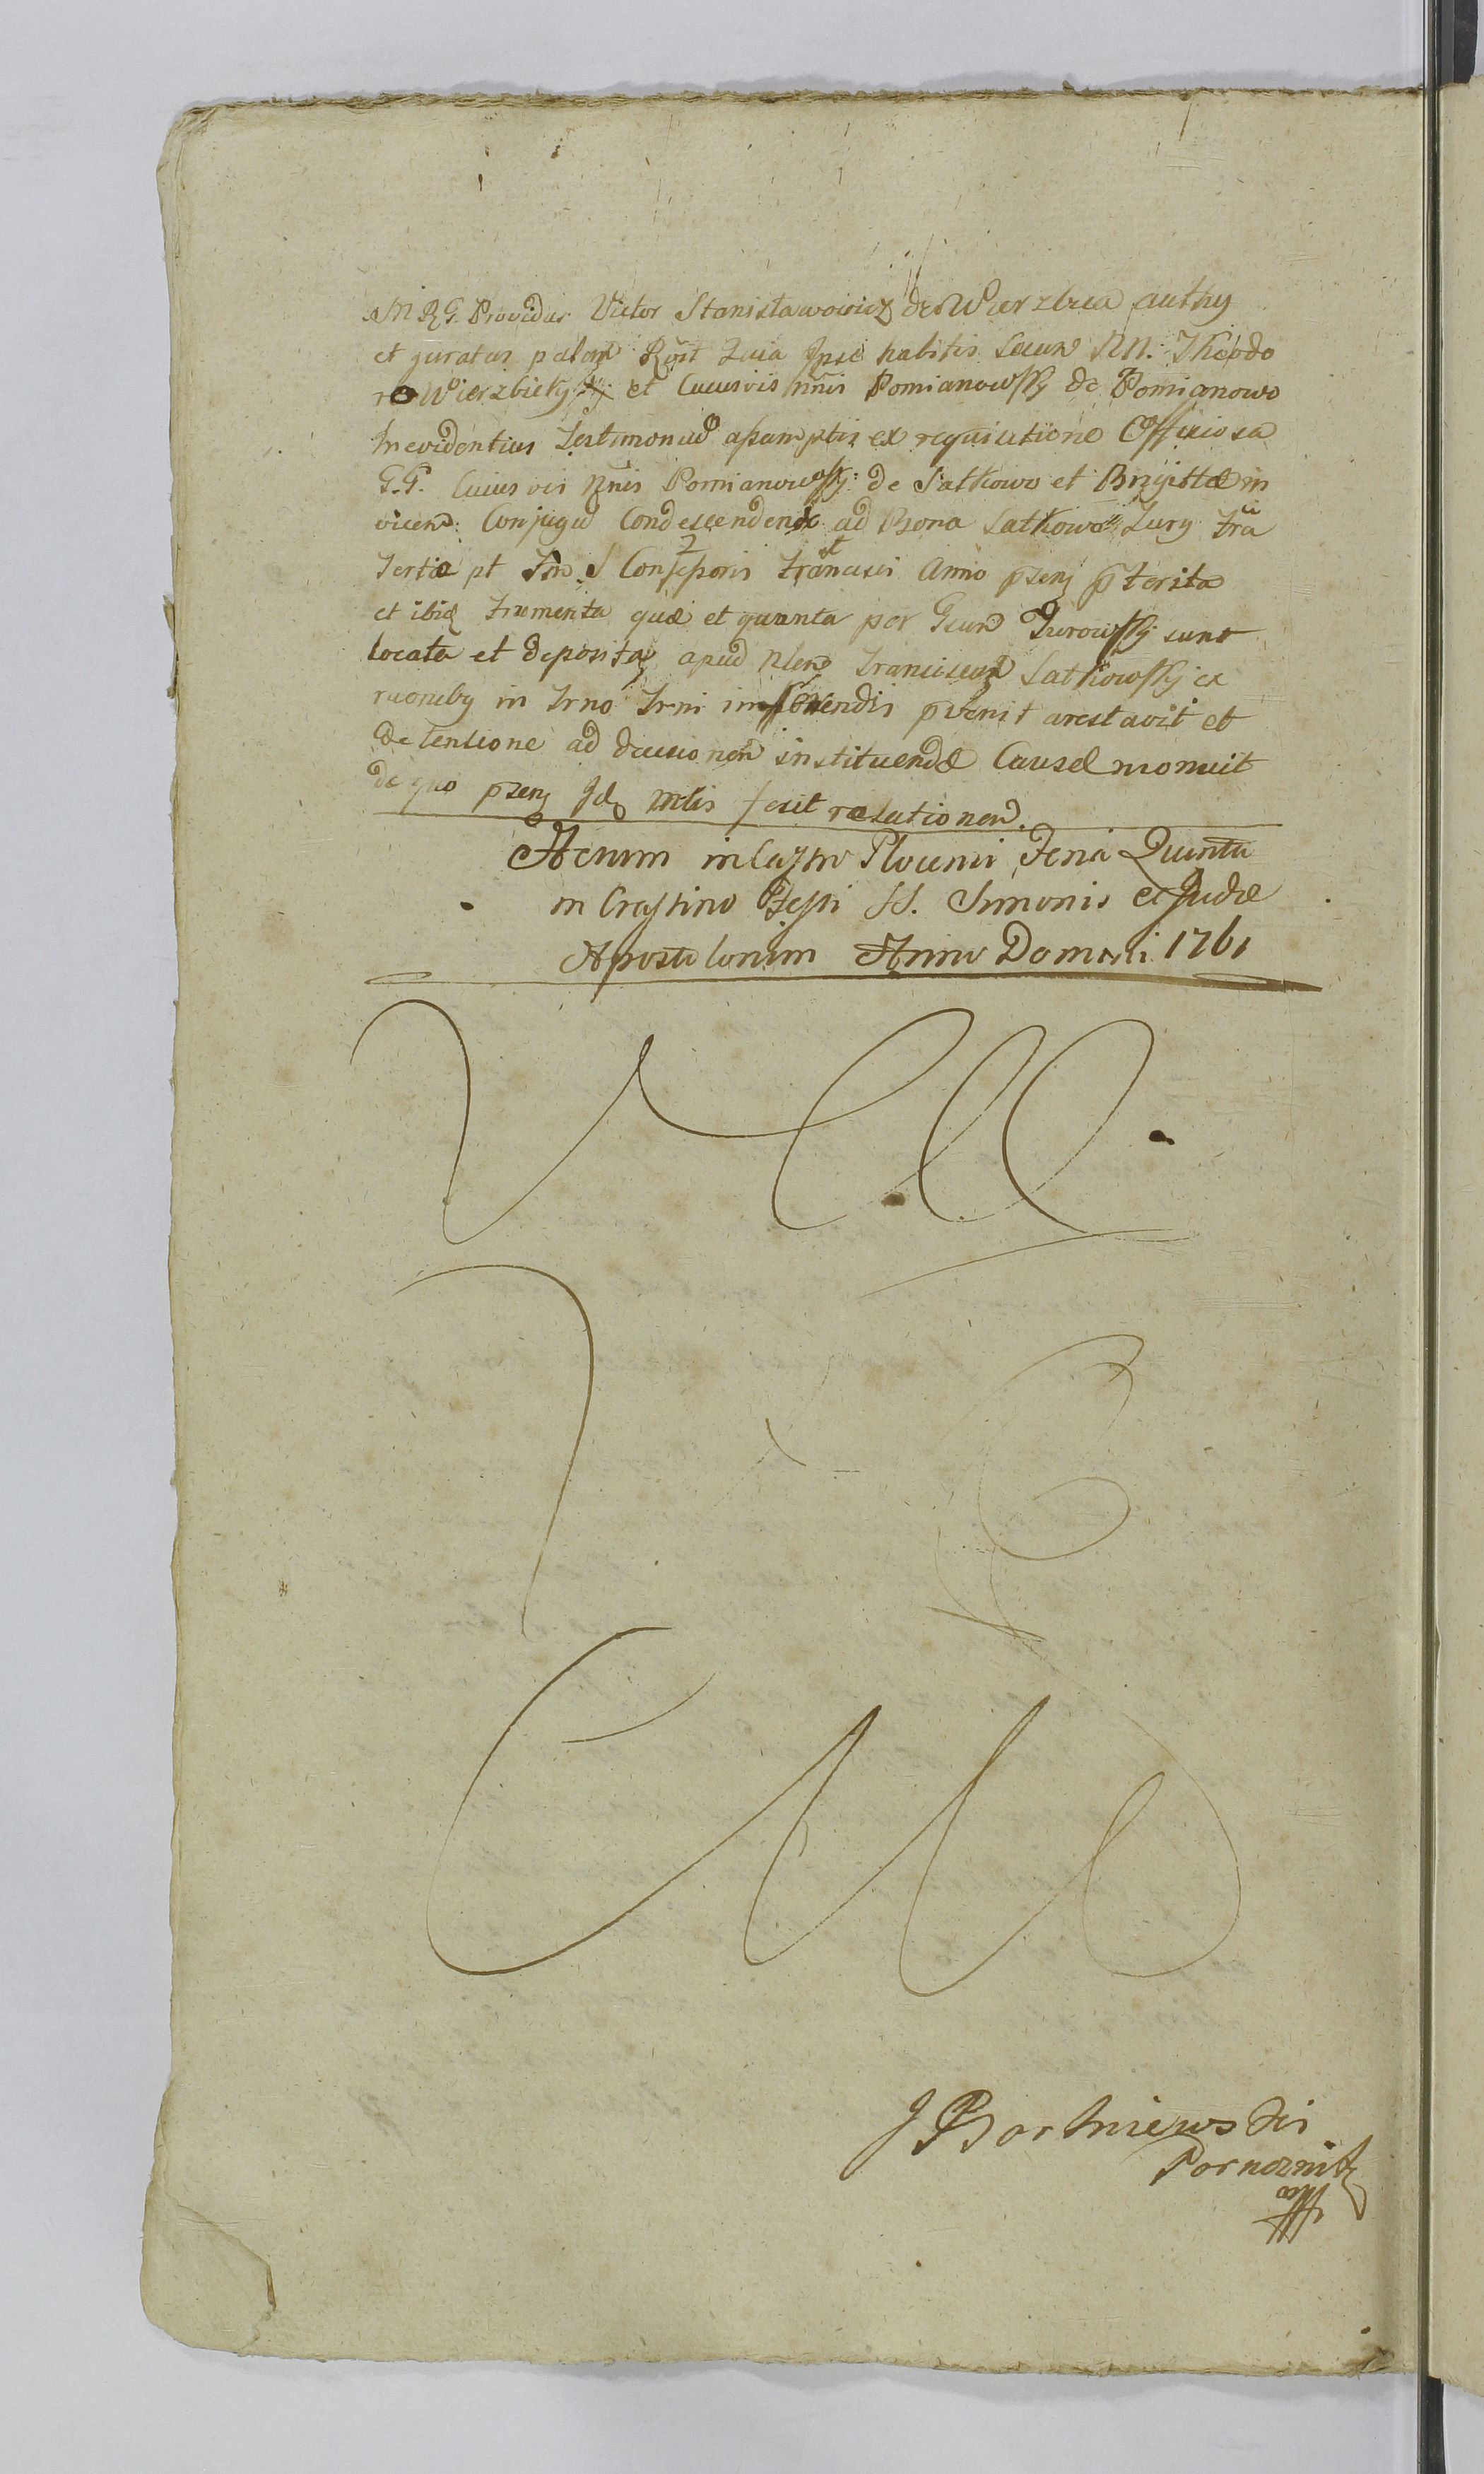 M R G. Providus Victor Stanisławowicz de Wierzbica authus
et juratus palam Rōst Quia Ipse habitis secum NN. Theodo
ro Wierzbicky et Cuiusvis nnis Pomianowsky de Pomianowo
In evidentius Testimoniū assumptis ex requisitione Officiosa
G.G. Cuiusvis nnis Pomianowsky de Satkowo et Brigittæ in
vicem: Conjugū Condescendendo ad Bona Satkowo Jury
Tertiæ pt S Confessoris Francisci Anno pzenj pterita
et ibiq frumenta quæ et quanta per Gsum Zurowsky sunt
locata et deposita apud Nlem Franciscum Satkowsky ex
rāonibg in Trno Trni imponendis pvenit arestavit et
detentione ad decisionem instituendæ Causæ monuit
de quo pzenj Idq mtlis fecit relationem.
Actum in Castro Plocensi Feria Quinta
in Crastino Festi SS. Simonis et Judæ
Apostolorum Anno Domini 1761